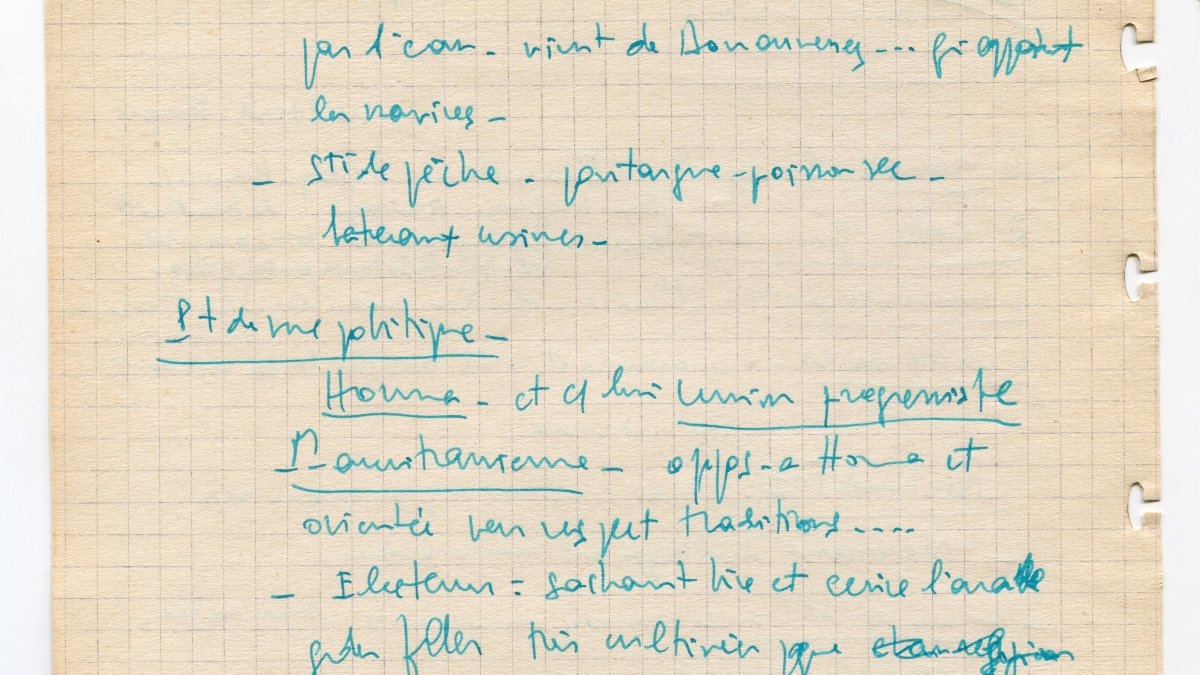 par l'eau - vient de Douarnenez ... qui apportent
les navires -
- Sté de pêche - portugaise - poisson sec -
bateaux usines -
Pt de vue politique -
Horma - et c/ lui Union progressiste
Mauritanienne - opps - a Horma et
orientée vers respect traditions ....
- Electeurs = sachant lire et écrire l'arabe
très cultivées que